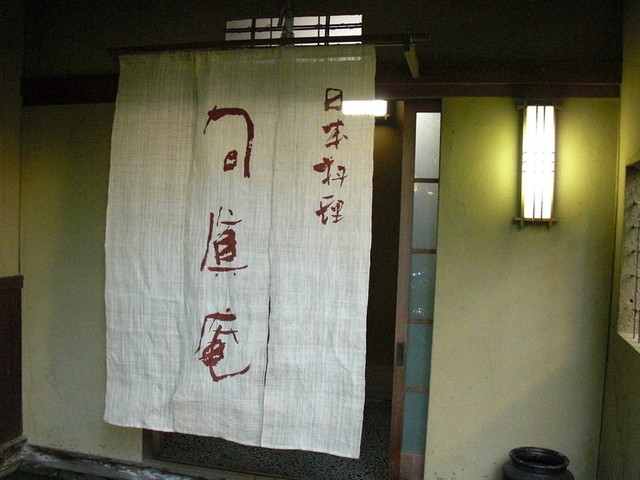 日本料理
旬眞庵